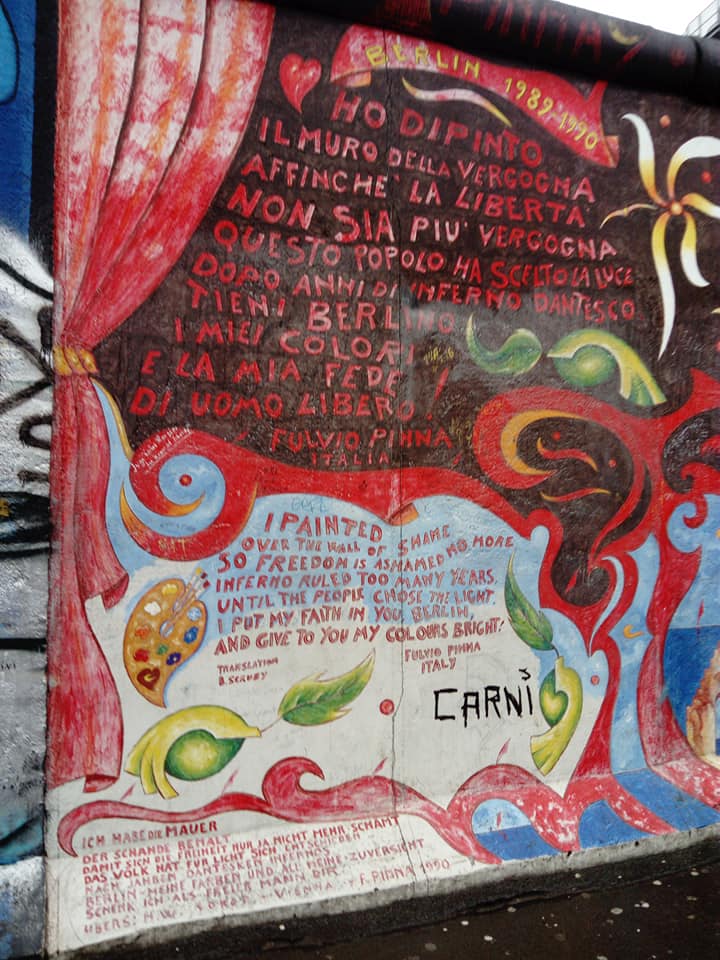 BERLIN 1989-1990
HO DIPINTO
IL MURO DELLA VERGOGNA
AFFINCHE' LA LIBERTA'
NON SIA PIU' VERGOGNA
QUESTO POPOLO HA SCELTO LA LUCE
DOPO ANNI DI INFERNO DANTESCO
TIENI BERLINO
I MIEI COLORI
E LA MIA FEDE
DI UOMO LIBERO!
FULVIO PINNA
ITALIA
I PAINTED
OVER THE WALL OF SHAME
SO FREEDOM IS ASHAMED NO MORE
INFERNO RULED TOO MANY YEARS,
UNTIL THE PEOPLE CHOSE THE LIGHT.
I PUT MY FAITH IN YOU BERLIN,
AND GIVE TO YOU MY COLOURS BRIGHT!
FULVIO PINNA
ITALY
TRANSLATION
CARNÌ
ICH HABE DIE MAUER
DER SCHANDE BEMALT
DAMIT SICH DIE FREIHEIT NUR JA NICHT MEHR SCHÄMT
DAS VOLK HAT FÜR LICHT SICH ENTSCHIEDEN
NACH JAHREN DANTESKEN INFERNOS
BERLIN MEINE FARBEN UND ALL MEINE ZUVERSICHT
SCHENK ICH ALS FREIER MANN DIR
F. PINNA 1990
ÜBERS: H.W. VIENNA